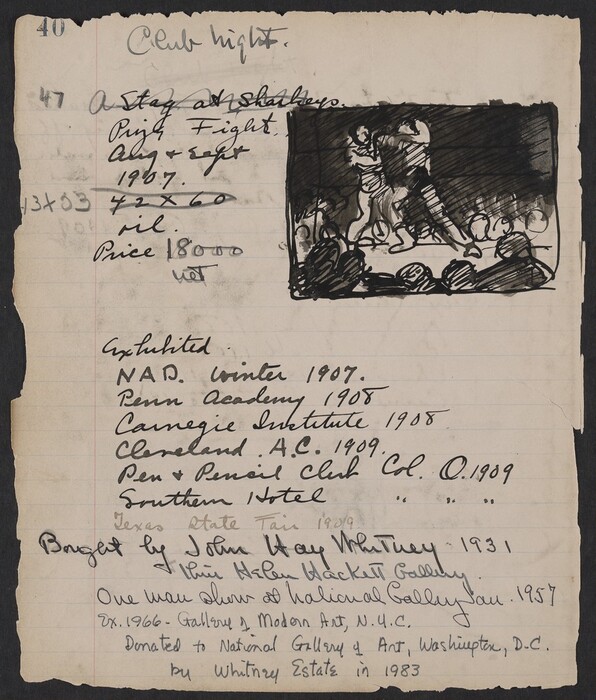 40
Club Night.
47 A Stag at Sharkeys.
Prize Fight.
Aug & Sept
1907.
43x53 42 x 60
oil.
Price 18000
net
Exhibited.
N.A.D. Winter 1907.
Penn Academy 1908
Carnegie Institute 1908
Cleveland. A.C. 1909.
Pen & Pencil Club Col. O. 1909
Southern Hotel " " "
Texas State Fair 1909
Bought by John Hay Whitney - 1931
thru Helen Hackett Gallery.
One man show at National Gallery Jan. 1957
Ex. 1966 - Gallery of Modern Art, N.Y.C.
Donated to National Gallery of Art, Washington, D.C.
by Whitney Estate in 1983